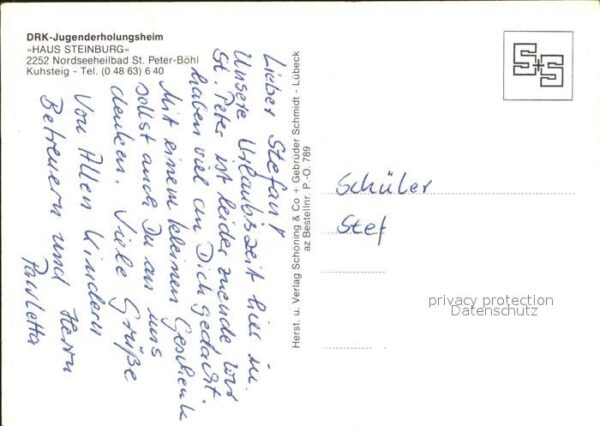 DRK-Jugenderholungsheim
»HAUS STEINBURG«
2252 Nordseeheilbad St. Peter-Böhl
Kuhsteig - Tel. (0 48 63) 6 40
Lieber Stefan!
Unsere Urlaubszeit hier in
St. Peter ist leider zuende Wir
haben viel an Dich gedacht.
Mit einem kleinen Geschenk
sollst auch Du an uns
denken. Viele Grüße
Von Allen Kindern
Betreuern und Herrn
Pawletta
Herst. u. Verlag Schöning & Co + Gebrüder Schmidt - Lübeck
az Bestellnr. P.-O. 789
S+S
Schüler
Stef
privacy protection
Datenschutz